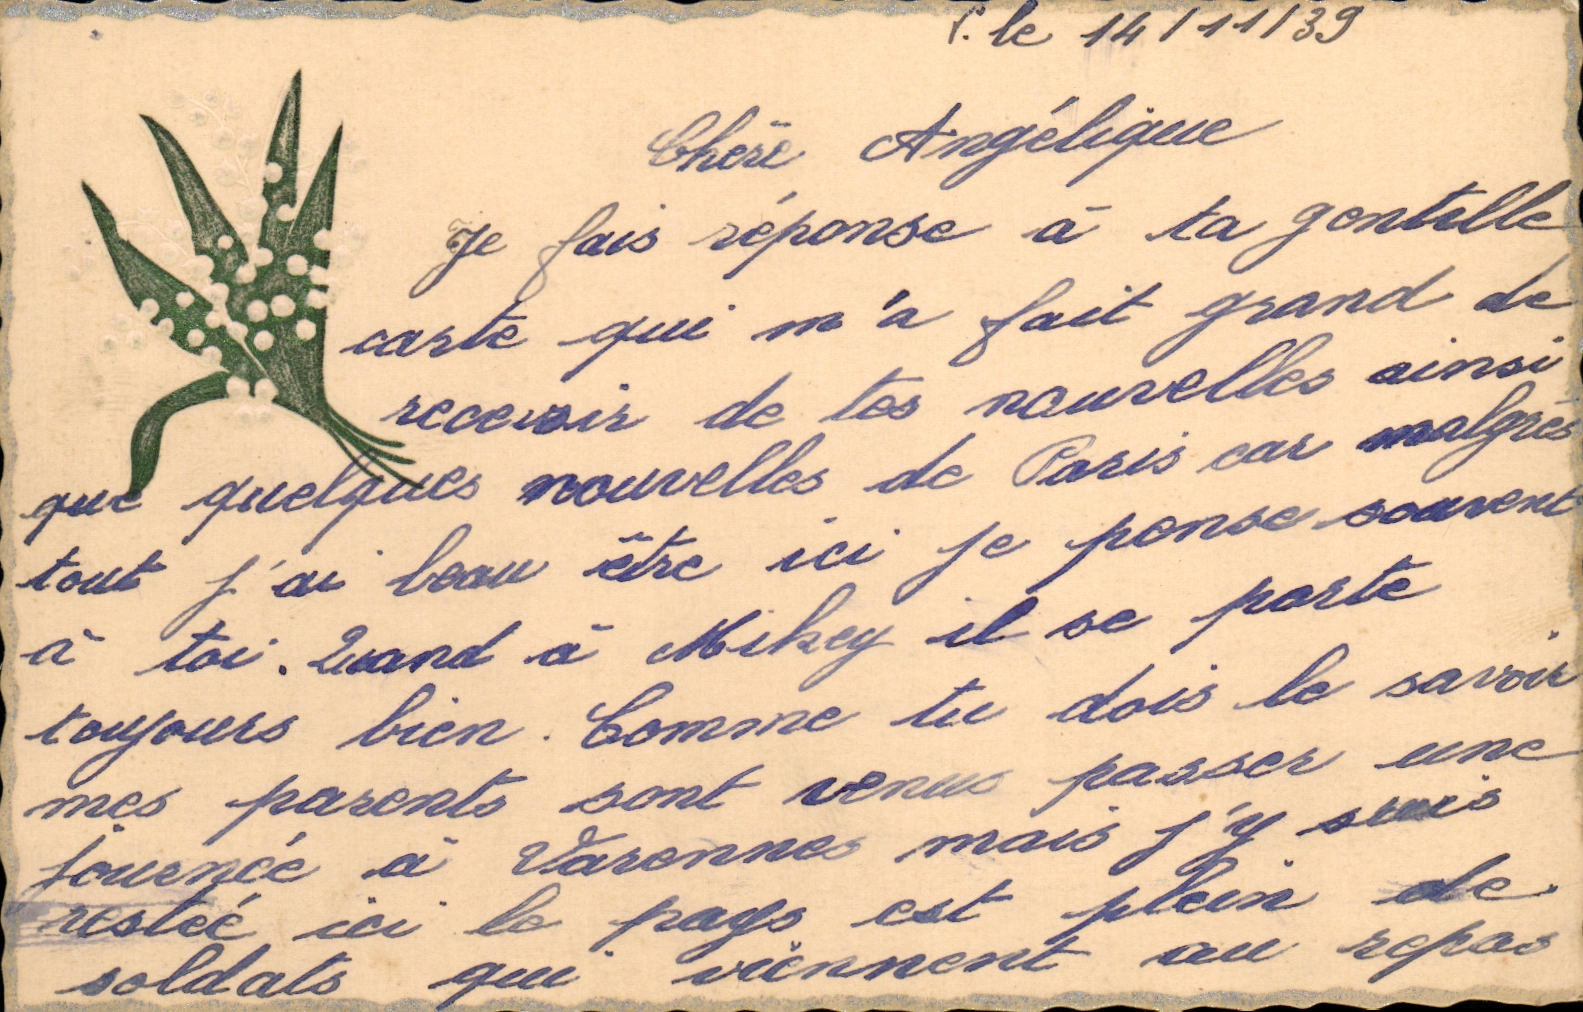 P. le 14/11/39
Chère Angélique
Je fais réponse à ta gentille
carte qui m'a fait grand de
recevoir de tes nouvelles ainsi
que quelques nouvelles de Paris car malgrès
tout j'ai beau être ici je pense souvent
à toi. Quand à Mikey il se porte
toujours bien. Comme tu dois le savoir
mes parents sont venus passer une
journée à Varennes mais j'y suis
restée ici le pays est plein de
soldats qui viennent au repos